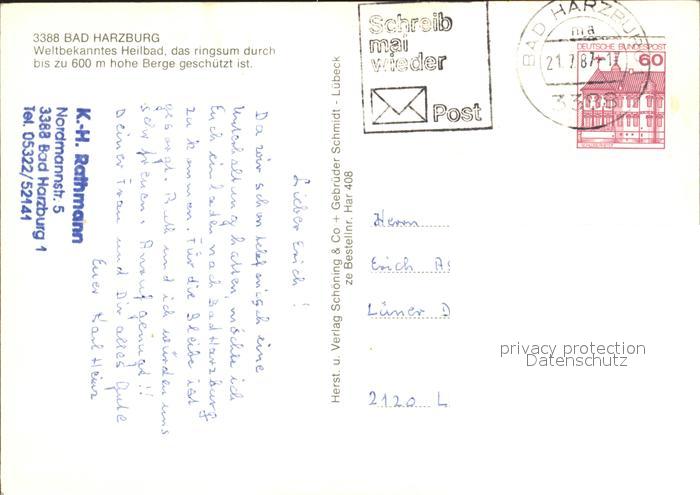 3388 BAD HARZBURG
Weltbekanntes Heilbad, das ringsum durch
bis zu 600 m hohe Berge geschützt ist.
Schreib
mal
wieder
Post
BAD HARZBURG
ma
21.7.87-17
3388
DEUTSCHE BUNDESPOST
60
K.-H. Rathmann
Nordmannstr. 5
3388 Bad Harzburg 1
Tel. 05322/52141
Lieber Erich!
Da wir schon telefonisch eine
Unterhaltung hatten, möchte ich
Euch einladen nach Bad Harzburg
zu kommen. Für die Bleibe ist
gesorgt. Ruth und ich würden uns
sehr freuen. Anruf genügt!!
Deiner Frau und Dir alles Gute
Euer Karl Heinz
Herst. u. Verlag Schöning & Co + Gebrüder Schmidt - Lübeck
ze Bestellnr. Har 408
Herrn
Erich As
Lüner D
2120 L
privacy protection
Datenschutz